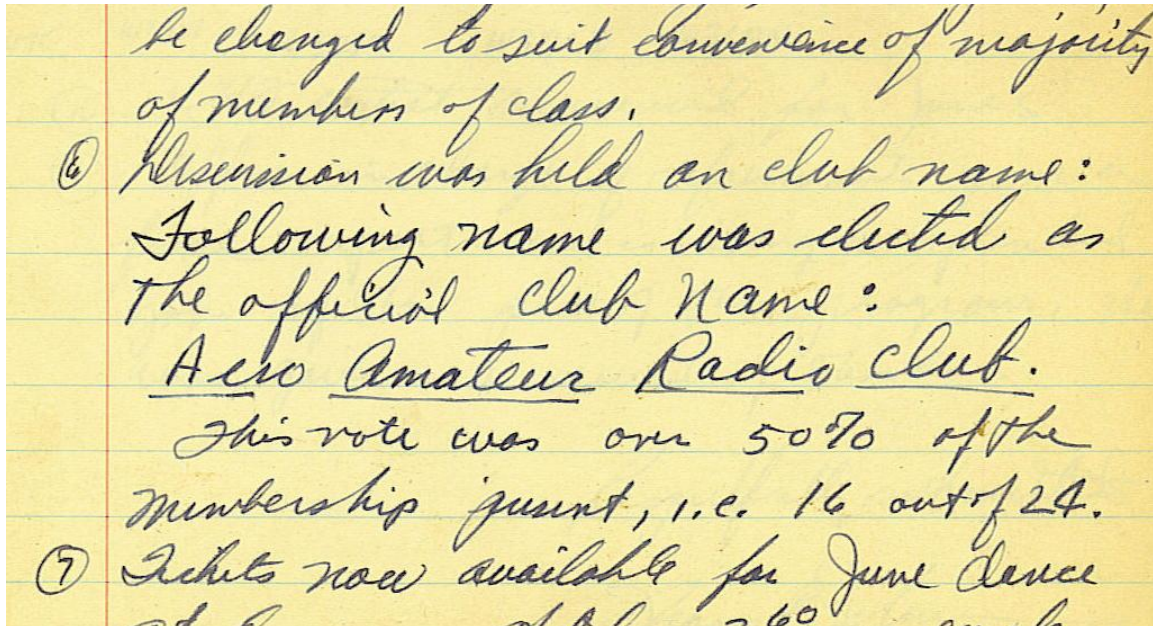 be changed to suit convenience of majority
of members of class.
⑥ Discussion was held on club name:
Following name was elected as
the official club Name:
Aero Amateur Radio Club.
This vote was over 50% of the
membership present, i.e. 16 out of 24.
⑦ Tickets now available for June dance